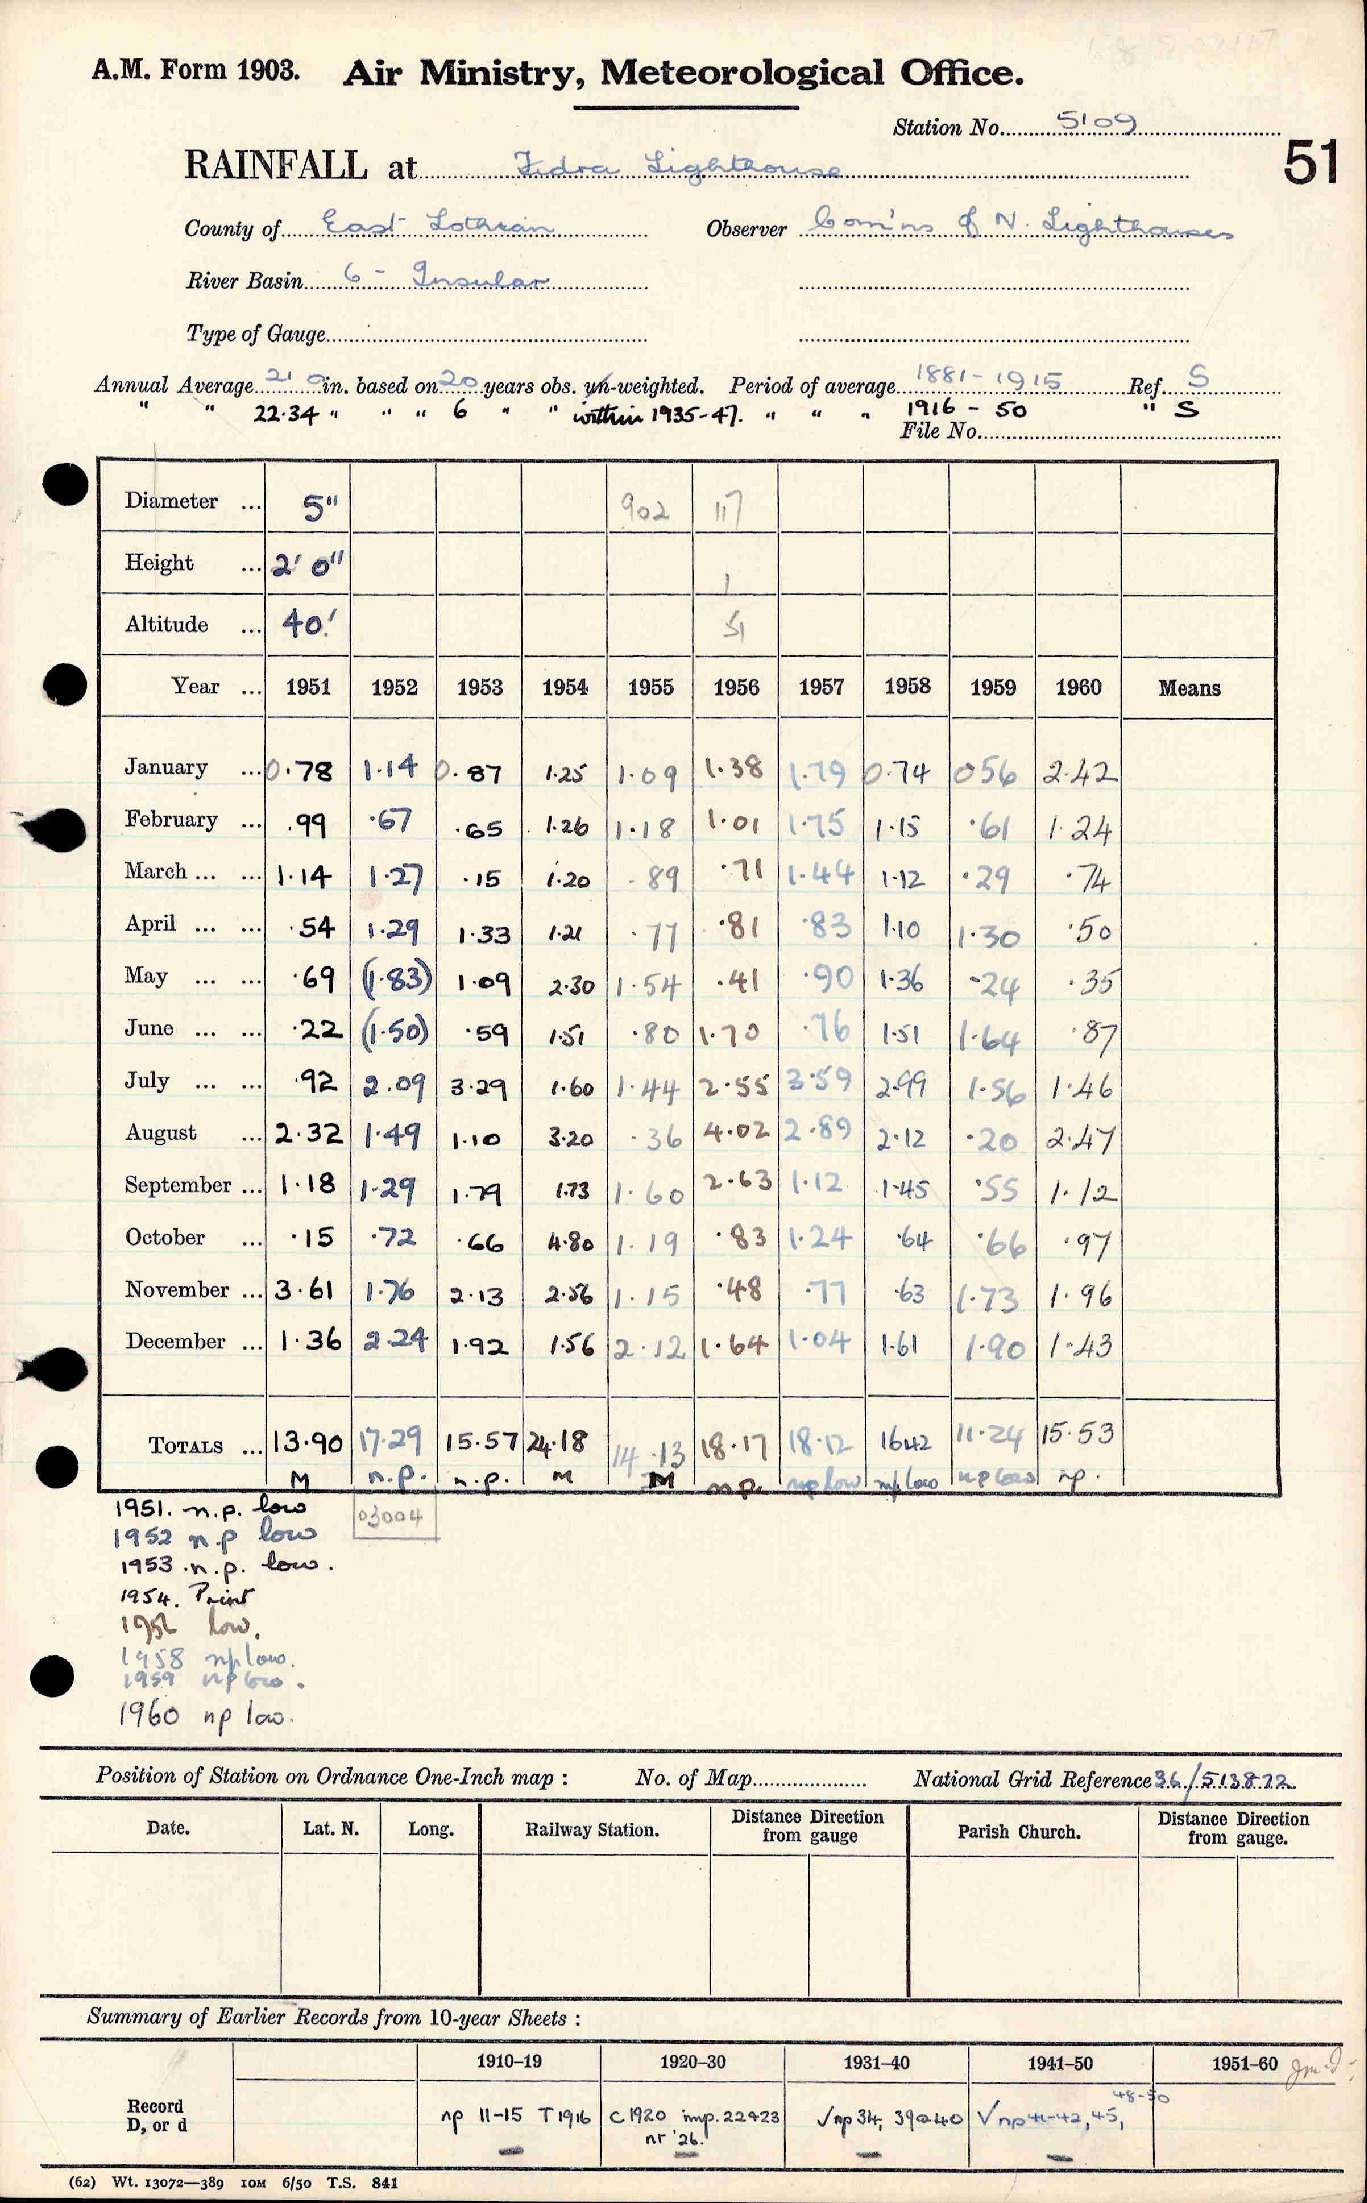 A.M. Form 1903. Air Ministry, Meteorological Office.
Station No. 5109
51
RAINFALL at Fidra Lighthouse
County of East Lothian Observer Com'ns of N. Lighthouses
River Basin 6 - Insular
Type of Gauge
Annual Average 21.9 in. based on 20 years obs. un-weighted. Period of average 1881-1915 Ref. S
" " 22.34 " " " 6 " " within 1935-47. " " " 1916 - 50 " S
File No.
Diameter ... 5" 902 117
Height ... 2' 0" 1
Altitude ... 40' 51
Year ... 1951 1952 1953 1954 1955 1956 1957 1958 1959 1960 Means
January ... 0.78 1.14 0.87 1.25 1.09 1.38 1.79 0.74 0 56 2.42
February ... .99 .67 .65 1.26 1.18 1.01 1.75 1.15 .61 1.24
March ... ... 1.14 1.27 .15 1.20 .89 .71 1.44 1.12 .29 .74
April ... ... .54 1.29 1.33 1.21 .77 .81 .83 1.10 1.30 .50
May ... ... .69 (1.83) 1.09 2.30 1.54 .41 .90 1.36 .24 .35
June ... ... .22 (1.50) .59 1.51 .80 1.70 .76 1.51 1.64 .87
July ... ... .92 2.09 3.29 1.60 1.44 2.55 3.59 2.99 1.56 1.46
August ... 2.32 1.49 1.10 3.20 .36 4.02 2.89 2.12 .20 2.47
September ... 1.18 1.29 1.79 1.73 1.60 2.63 1.12 1.45 .55 1.12
October ... .15 .72 .66 4.80 1.19 .83 1.24 .64 .66 .97
November ... 3.61 1.76 2.13 2.56 1.15 .48 .77 .63 1.73 1.96
December ... 1.36 2.24 1.92 1.56 2.12 1.64 1.04 1.61 1.90 1.43
TOTALS ... 13.90 17.29 15.57 24.18 14.13 18.17 18.12 1642 11.24 15.53
M n.p. n.p. M M n.p. np low np low np low np.
1951. n.p. low 03004
1952 n.p low
1953 .n.p. low.
1954. Print
1956 low.
1958 np low.
1959 np low.
1960 np low.
Position of Station on Ordnance One-Inch map : No. of Map National Grid Reference 36/513872
Date. Lat. N. Long. Railway Station. Distance Direction from gauge Parish Church. Distance Direction from gauge.
Summary of Earlier Records from 10-year Sheets :
1910–19 1920–30 1931–40 1941–50 1951–60
Record D, or d np 11-15 T 1916 C1920 imp. 22+23 nr '26. √np 34, 39+40 √np 41-42, 45, 48-50
(62) Wt. 13072—389 10M 6/50 T.S. 841